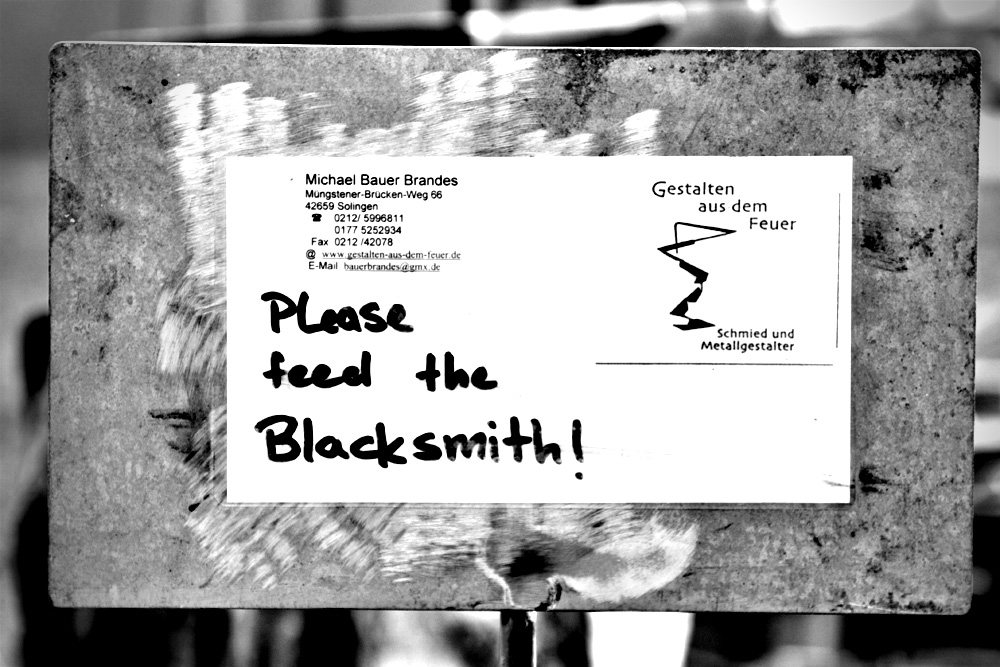 Michael Bauer Brandes
Müngstener-Brücken-Weg 66
42659 Solingen
☎ 0212/ 5996811
0177 5252934
Fax 0212 /42078
@ www.gestalten-aus-dem-feuer.de
E-Mail bauerbrandes@gmx.de
Gestalten
aus dem
Feuer
Schmied und
Metallgestalter
Please
feed the
Blacksmith!